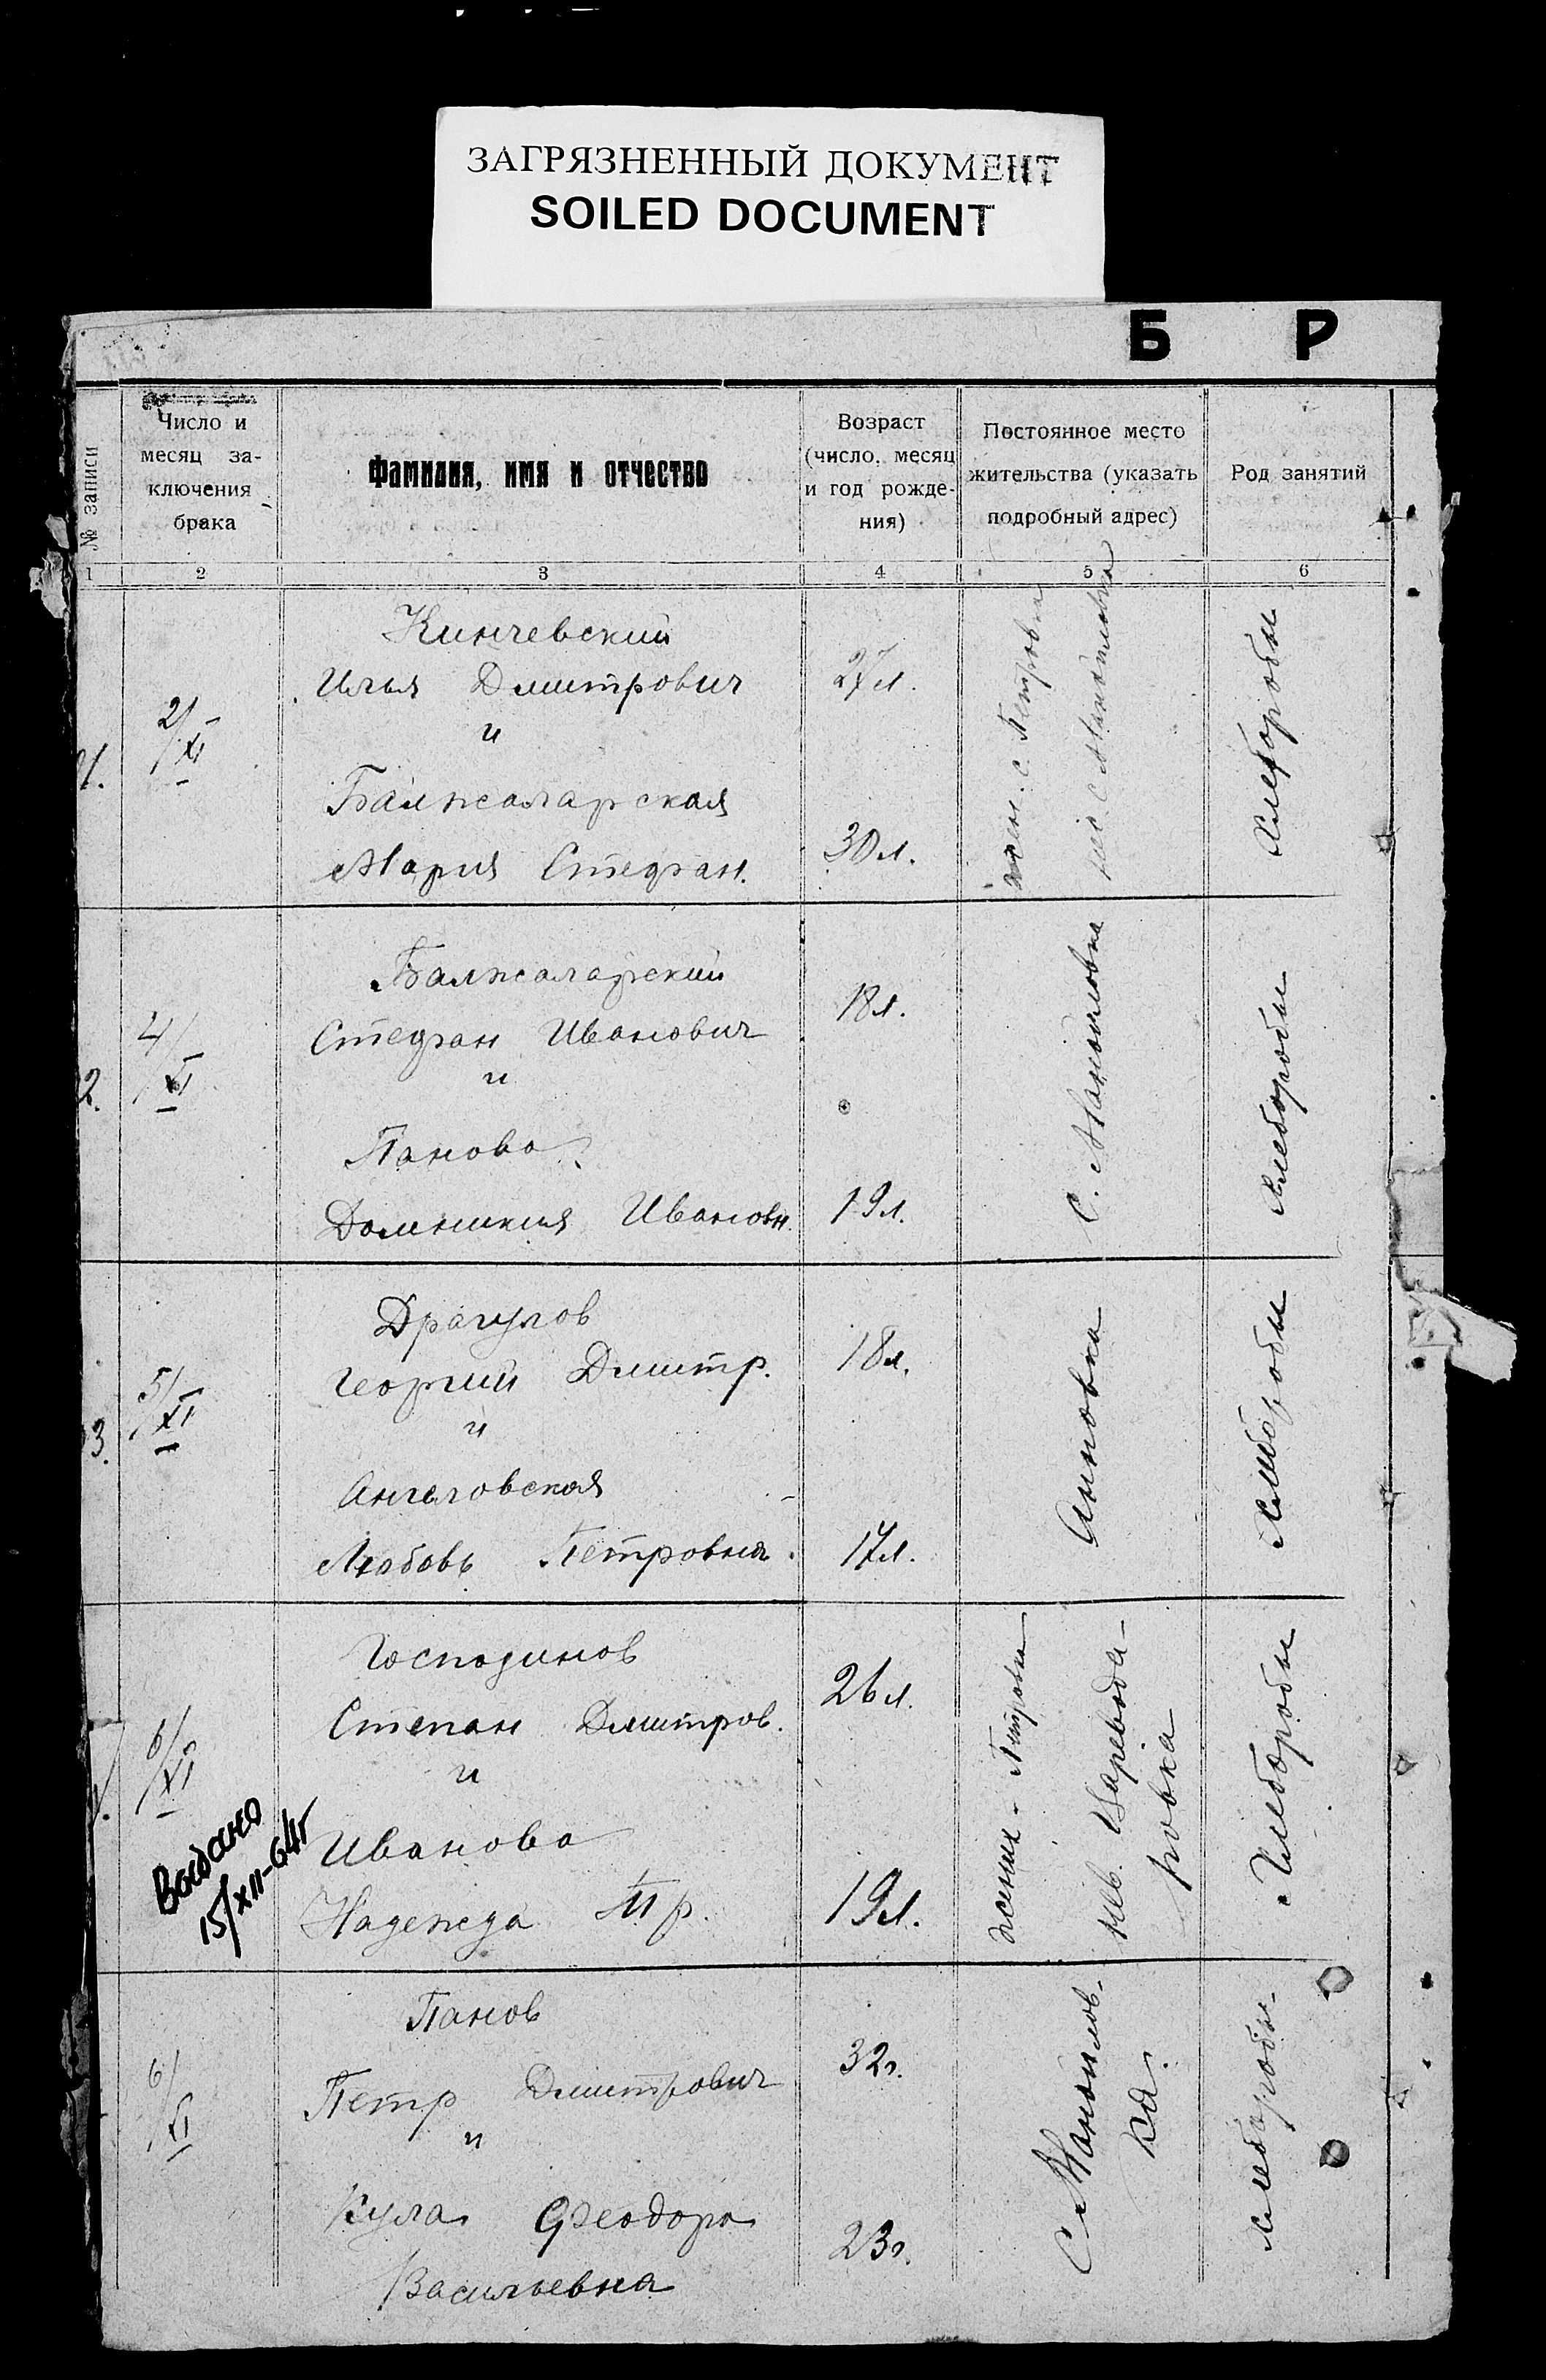 ЗАГРЯЗНЕННЫЙ ДОКУМЕНТ
SOILED DOCUMENT
Б Р
№ записи
Число и
месяц за-
ключения
брака
Фамилия, имя и отчество
Возраст
(число, месяц
и год рожде-
ния)
Постоянное место
жительства (указать
подробный адрес)
Род занятий
1 2 3 4 5 6
1.
2/XI
Кинчевский
Илья Дмитрович
и
Балжаларская
Мария Стефан.
27 л.
30 л.
жен. с. Петровка
нев. с. Манойловка
Хлеборобы
2.
4/XI
Балжаларский
Стефан Иванович
и
Панова
Домникия Ивановн.
18 л.
19 л.
С. Манойловка
Хлеборобы
3.
5/XI
Драгулов
Георгий Дмитр.
и
Ангеловская
Любовь Петровна.
18 л.
17 л.
Анновка
Хлеборобы
6/XI
Выдано
15/XII-64г
Господинов
Степан Дмитров.
и
Иванова
Надежда
26 л.
19 л.
жених - Петровка
нев. Царевода-
ровка
Хлеборобы
6/XI
Панов
Петр Дмитрович
и
Кула Феодора
Васильевна
32 г.
23 г.
С. Манойлов-
ка.
хлеборобы.